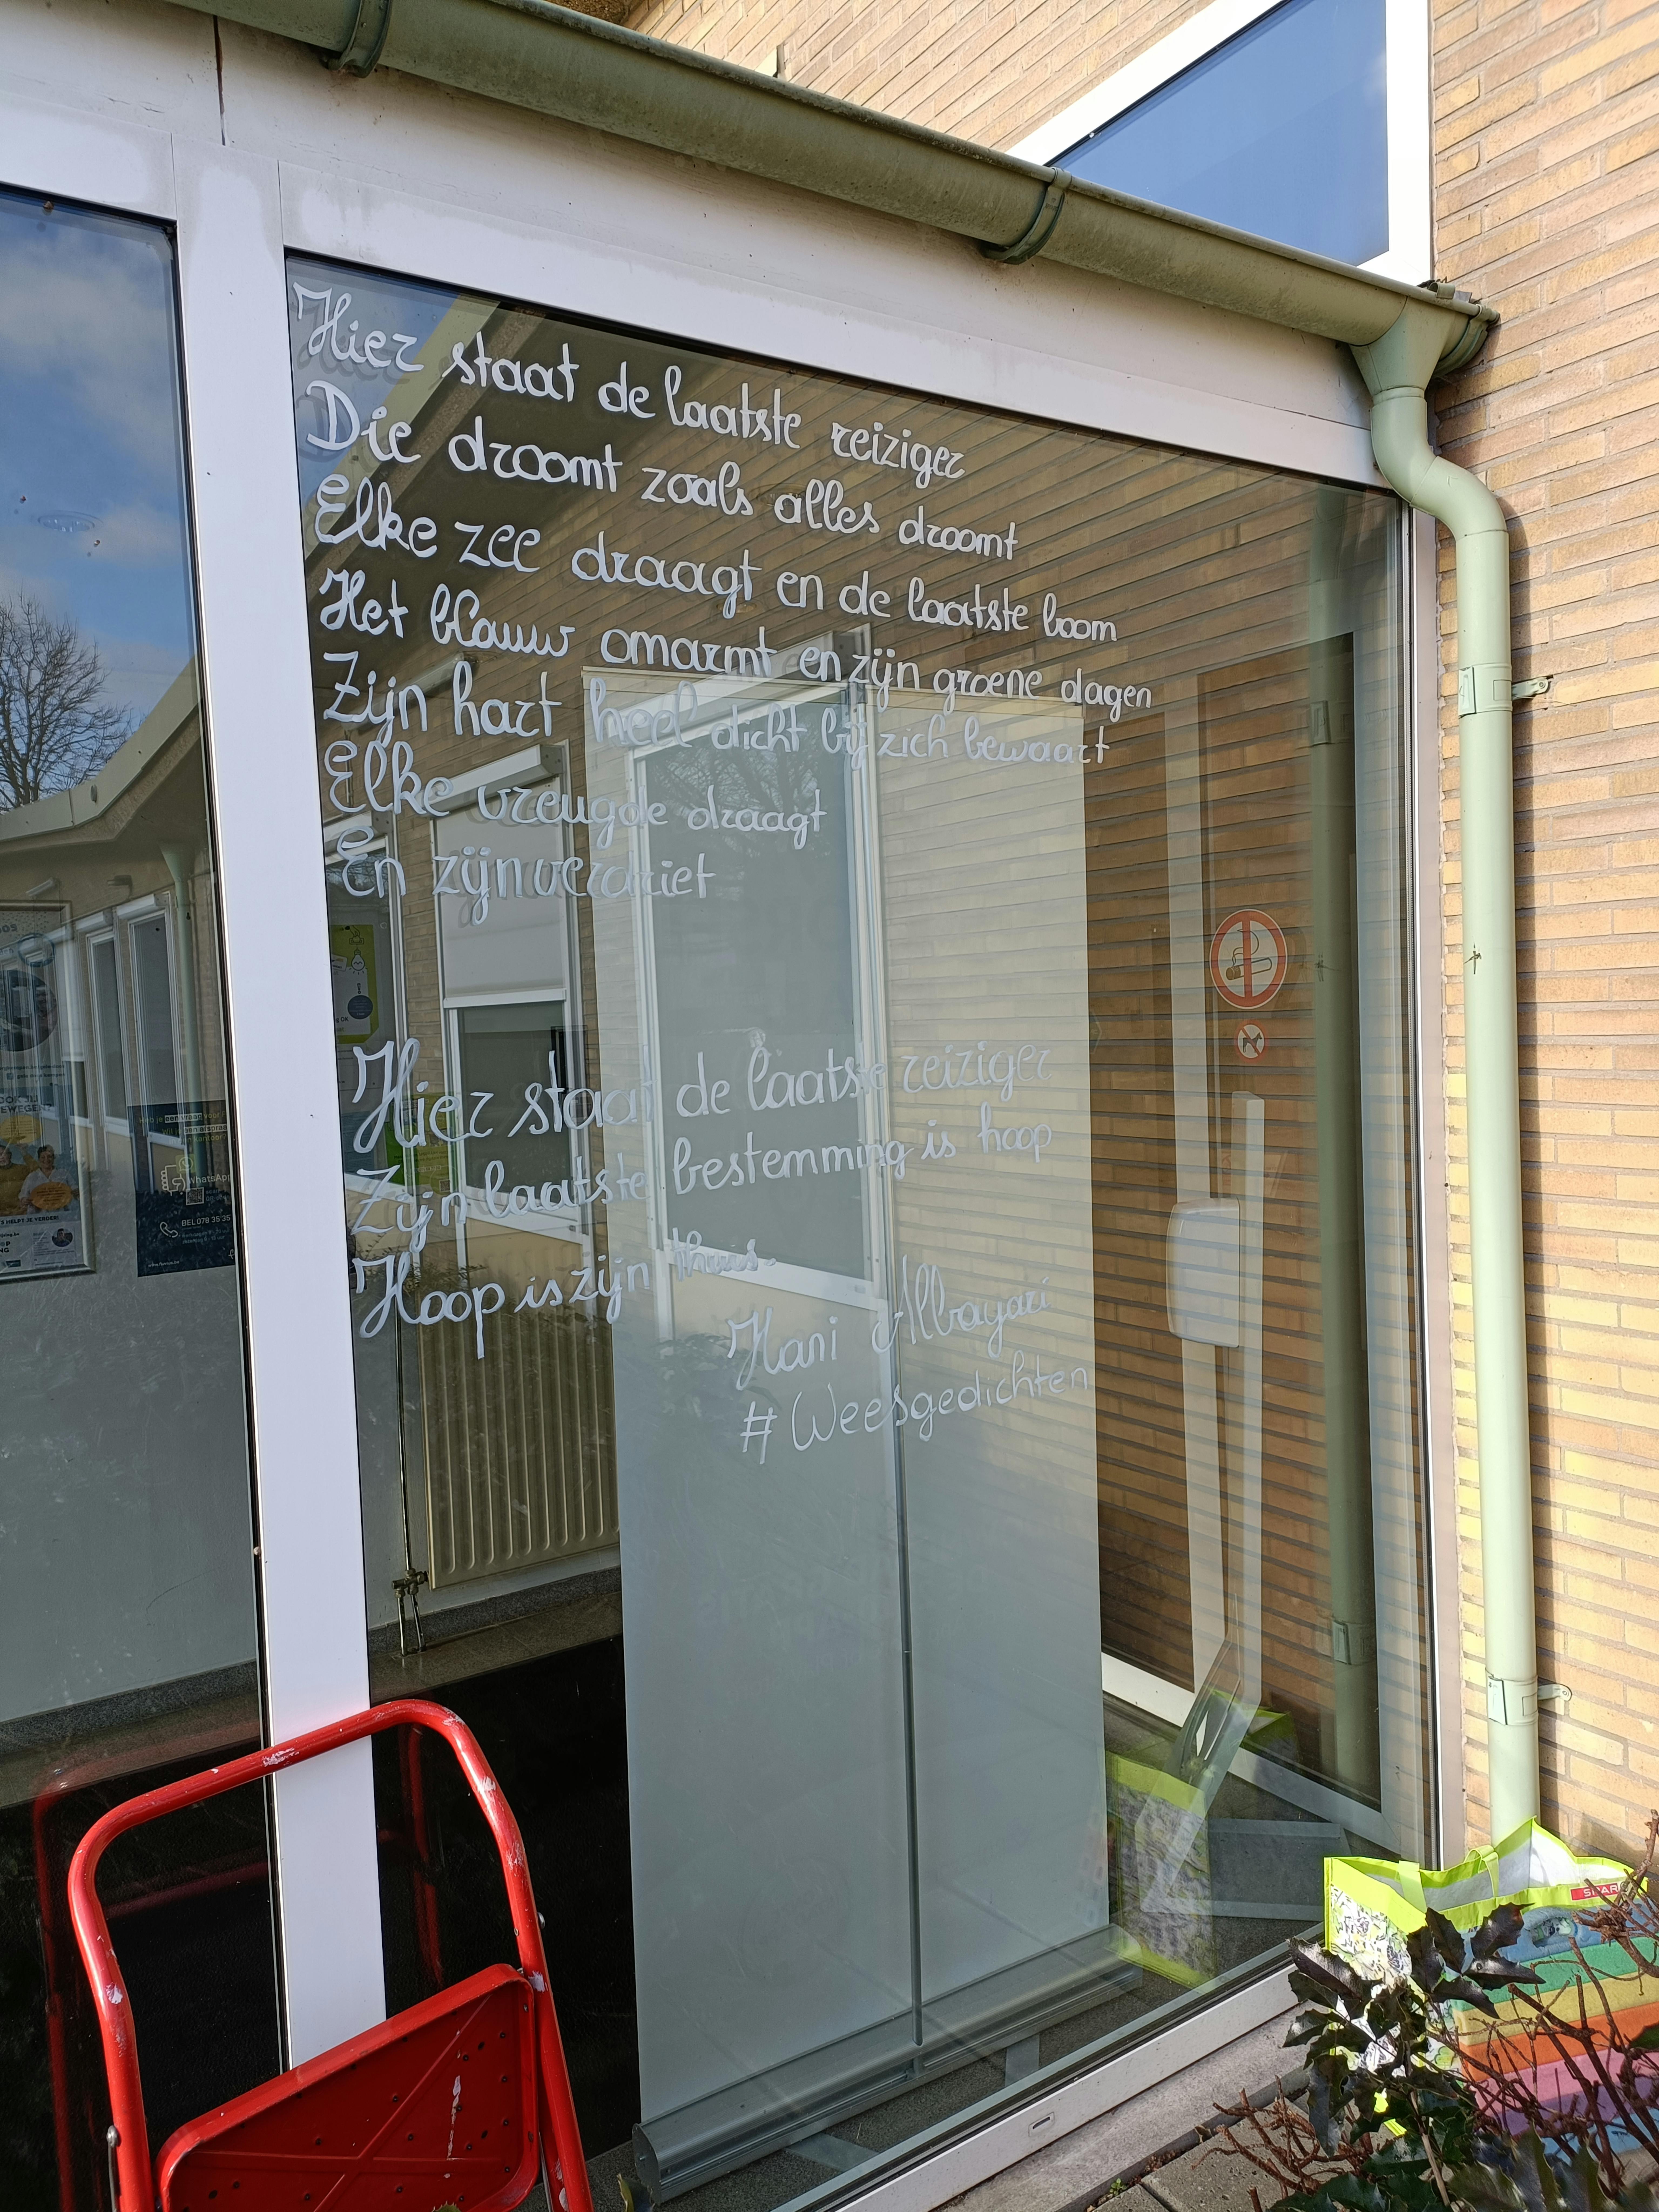 Hier staat de laatste reiziger
Die droomt zoals alles droomt
Elke zee draagt en de laatste boom
Het blauw omarmt en zijn groene dagen
Zijn hart heel dicht bij zich bewaart
Elke vreugde draagt
En zijn verdriet
Hier staat de laatste reiziger
Zijn laatste bestemming is hoop
Hoop is zijn thuis.
Hani Albayari
#Weesgedichten
WhatsApp
BEL 078 35 35
SPAR